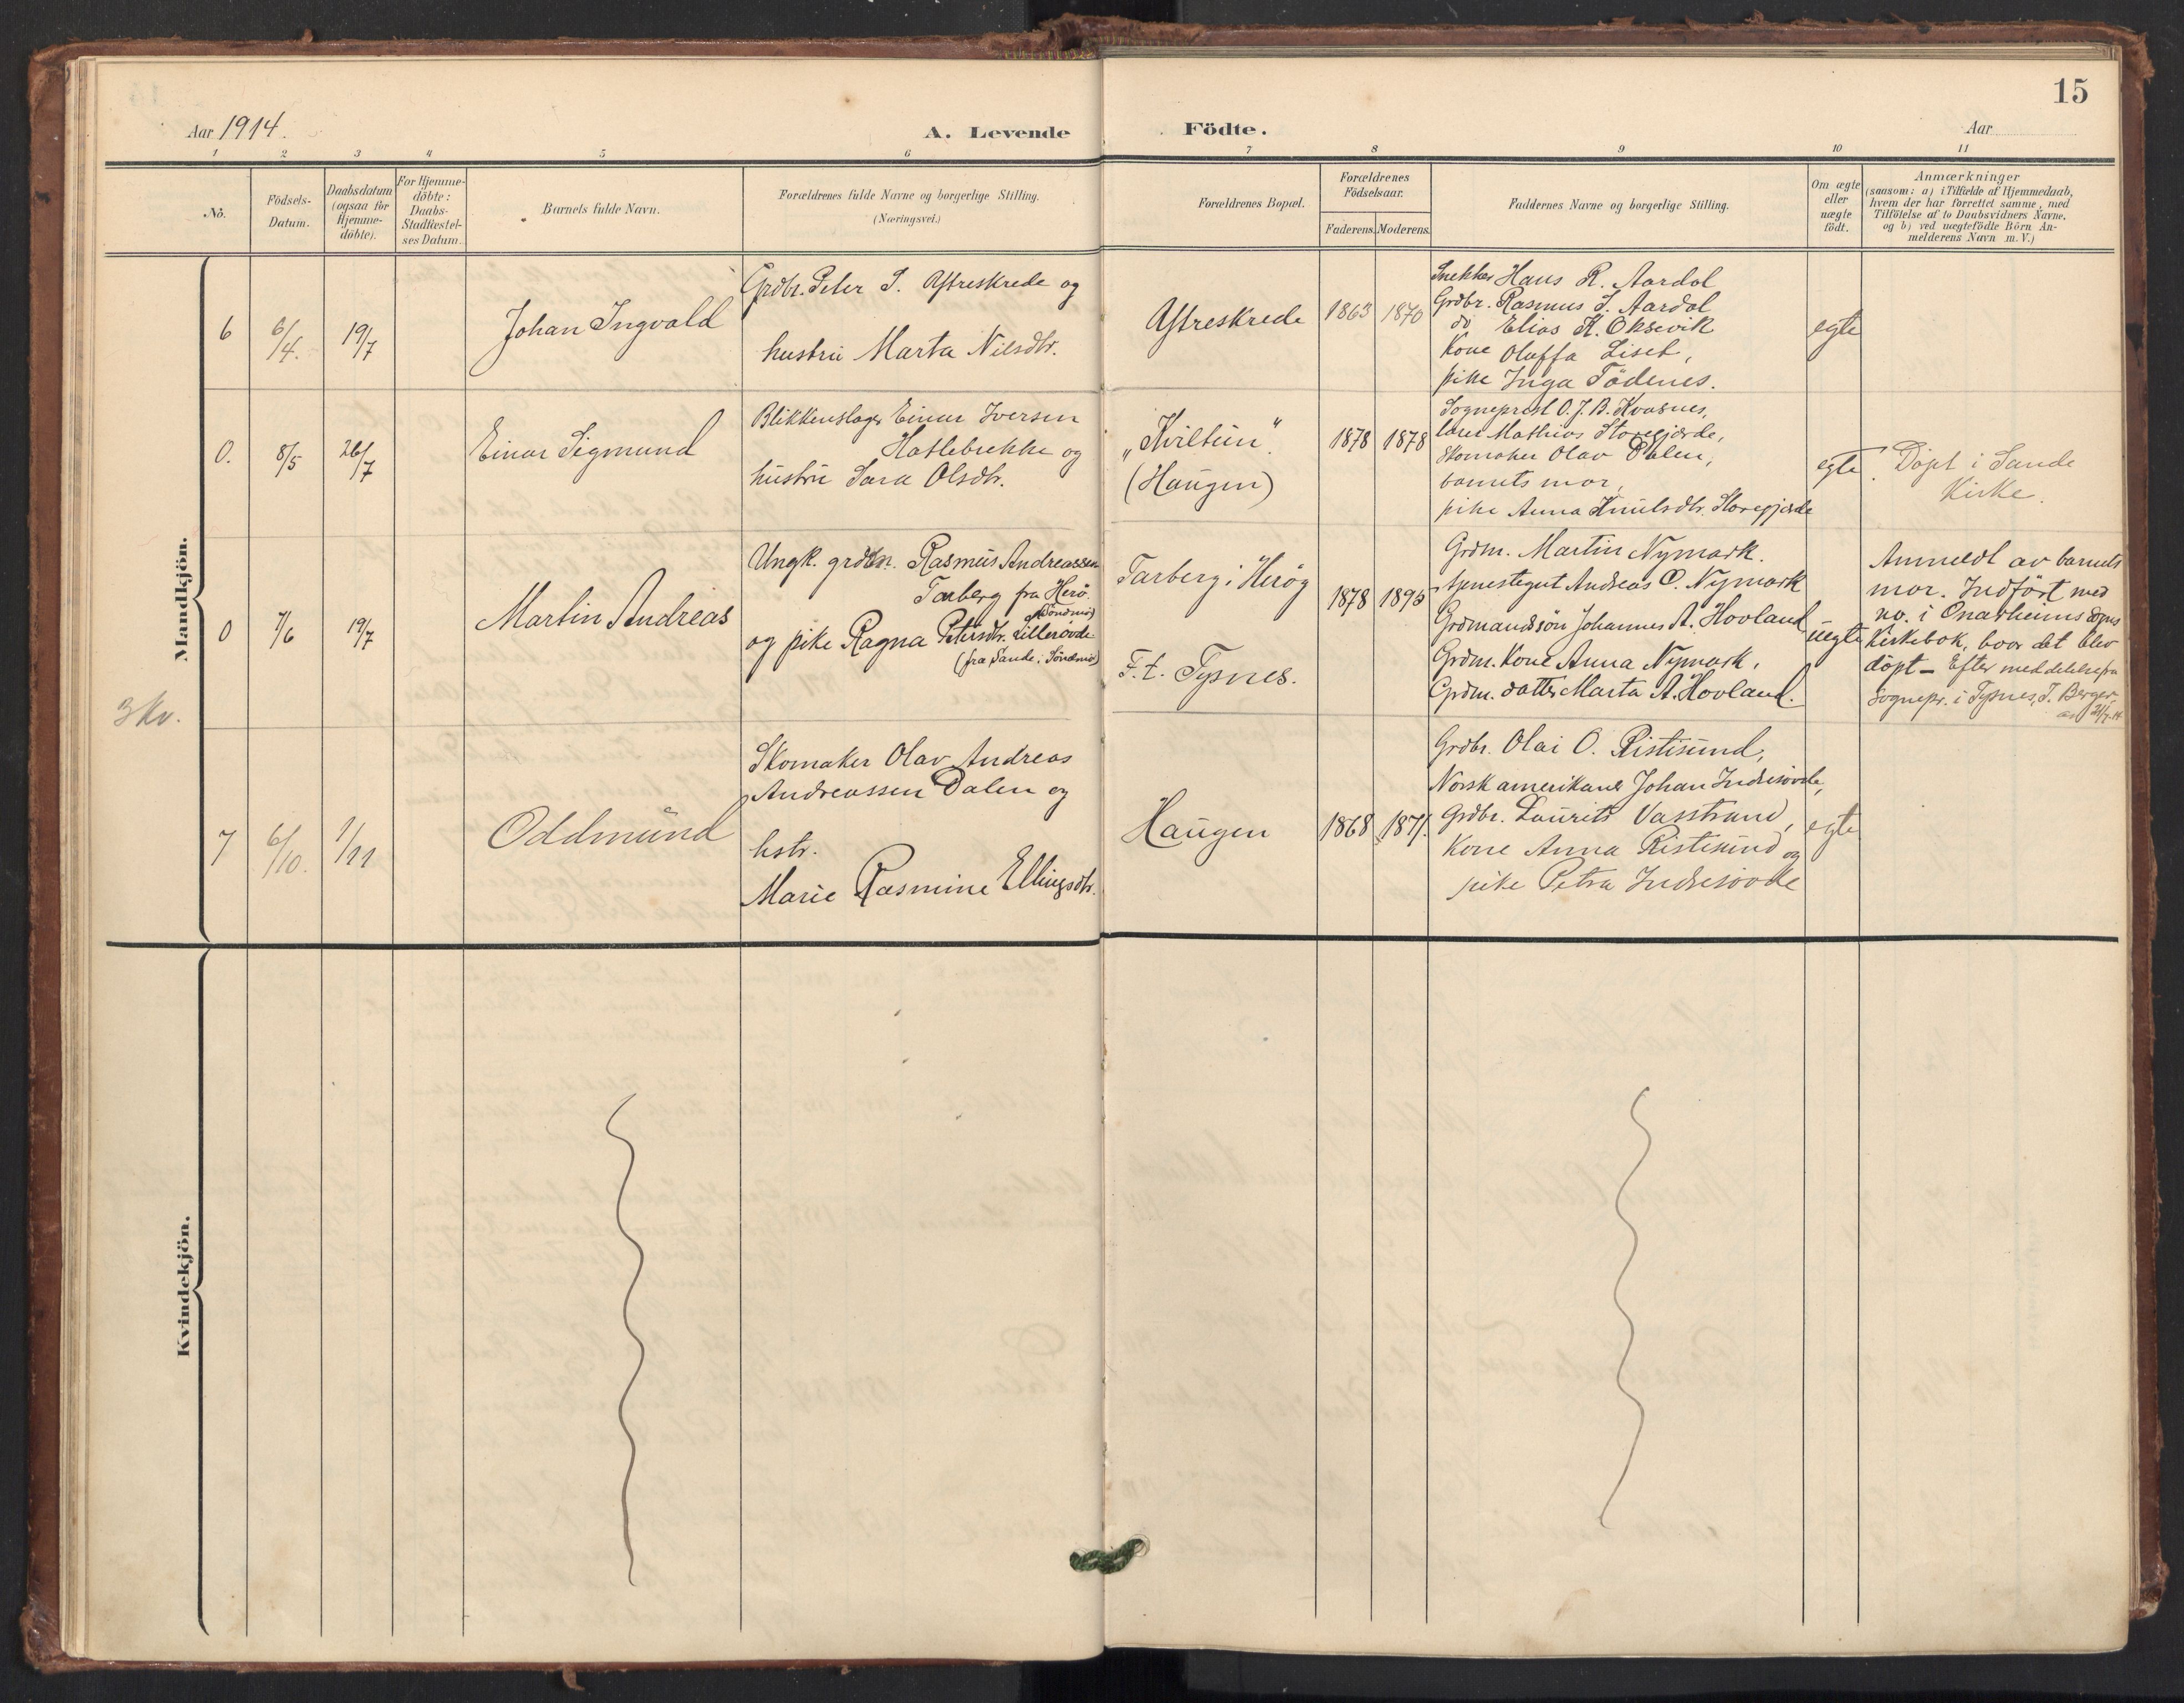 15
Aar 1914.
A. Levende Födte.
Aar
1 2 3 4 5 6 7 8 9 10 11
No.
Födsels-
Datum.
Daabsdatum
(ogsaa for
Hjemme-
döbte).
For Hjemme-
döbte:
Daabs-
Stadfæstel-
ses Datum.
Barnets fulde Navn.
Forældrenes fulde Navne og borgerlige Stilling.
(Næringsvei.)
Forældrenes Bopæl.
Forældrenes
Födselsaar.
Faderens. Moderens.
Faddernes Navne og borgerlige Stilling.
Om ægte
eller
uægte
födt.
Anmærkninger
(saasom: a) i Tilfælde af Hjemmedaab,
hvem der har forrettet samme, med
Tilföielse af to Daabsvidners Navne.
og b) ved uægtefödte Börn An-
melderens Navn m. V.)
Mandkjön.
6
6/4.
19/7
Johan Ingvald
Grdbr. Peter S. Aftreskrede og
hustru Marta Nilsdtr.
Aftreskrede
1863
1870
Snekker Hans R. Aardal
Grdbr. Rasmus S. Aardal
do Elias K. Oksevik
Kone Oluffa Liset,
pike Inga Tödenes.
egte
0.
8/5
26/7
Einar Sigmund
Blikkenslager Einar Iversen
Hatlebrekke og
hustru Sara Olsdtr.
„Kviltun“.
(Haugen)
1878
1878
Sogneprest O. J. B. Kvasnes,
lærer Mathias Storegjærde,
Skomaker Olav Dalen,
barnets mor,
pike Anna Knutsdtr. Storegjærde
egte
Döpt i Sande
Kirke.
0
7/6
19/7
Martin Andreas
Ungk. grdbr. Rasmus Andreassen
Tarberg fra Herö.
Söndmör
og pike Ragna Petersdtr. Lillesövde
(fra Sande i Söndmör)
Tarberg i Heröy
F. t. Tysnes.
1878
1895
Grdm. Martin Nymark.
tjenestegut Andreas O. Nymark
Grdmandssön Johannes A. Hovland
Grdm. Kone Anna Nymark,
Grdm. datter Marta A. Hovland.
uegte
Anmeldt av barnets
mor. Indfört med
no. i Onarheims sogns
Kirkebok, hvor det blev
döpt – Efter meddelelse fra
Sognepr. i Tysnes, T. Berger
21/7-14
3 kv.
7
6/10.
1/11
Oddmund
Skomaker Olav Andreas
Andreassen Dalen og
hstr.
Marie Rasmine Ellingsdtr.
Haugen
1868
1871.
Grdbr. Olai O. Ristesund,
Norskamerikaner Johan Indresövde,
Grdbr. Laurits Vasstrand,
Kone Anna Ristesund og
pike Petra Indresövde
egte
Kvindekjön.